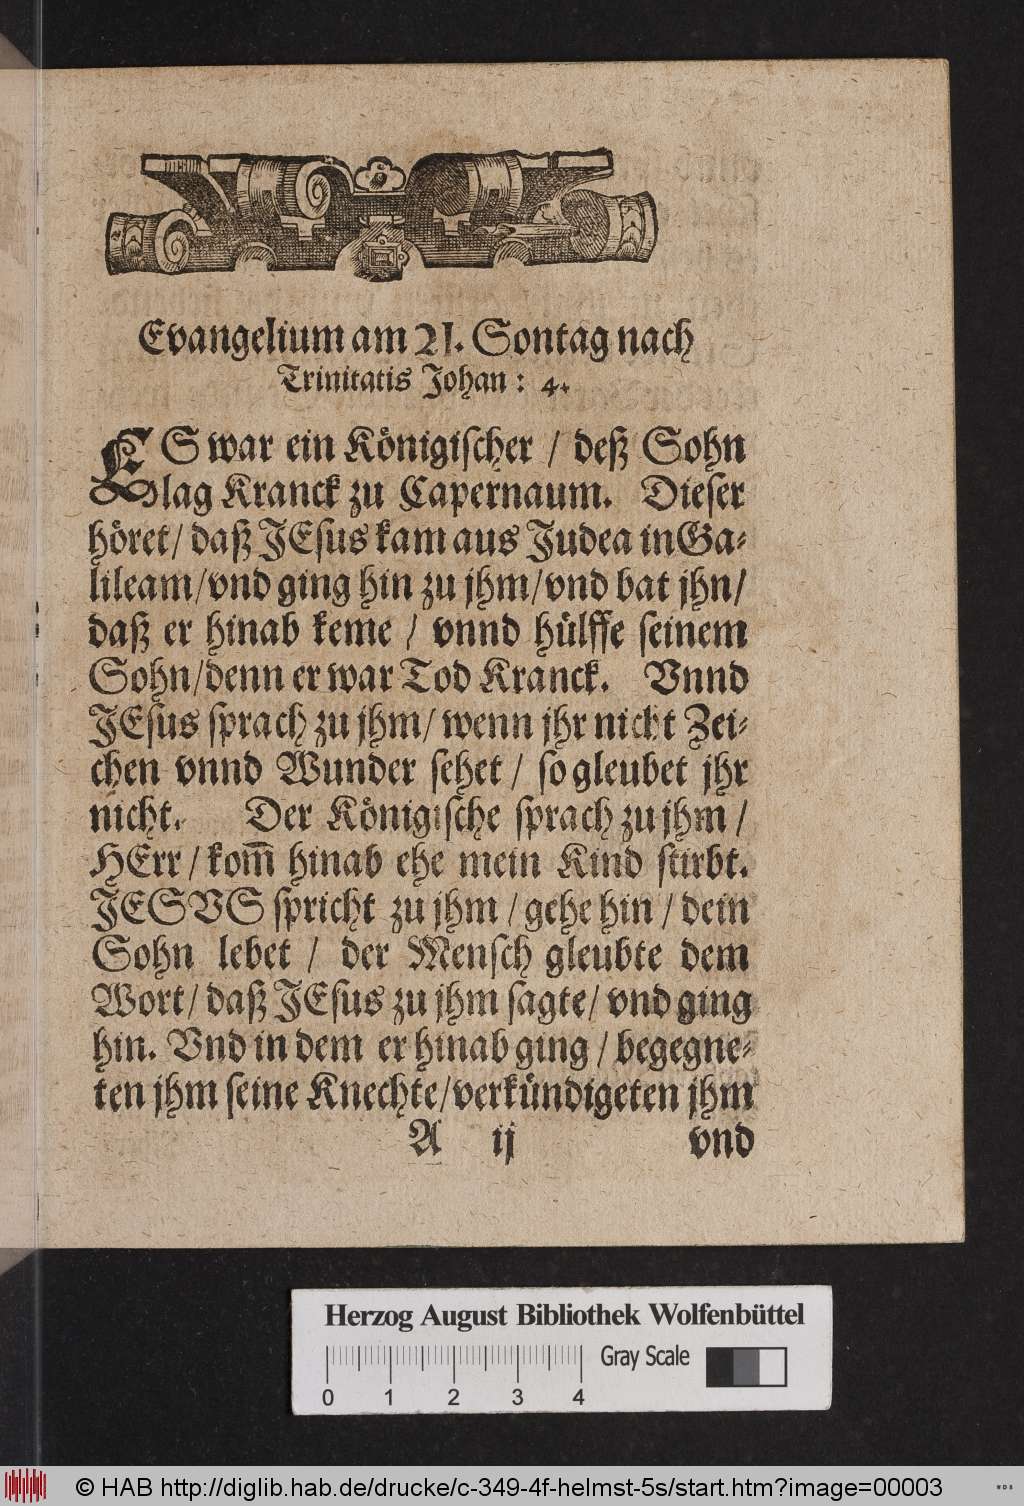 Evangelium am 21. Sontag nach
Trinitatis Johan: 4.
ES war ein Königiſcher / deß Sohn
lag Kranck zu Capernaum. Dieſer
höret / daß JEſus kam aus Judea in Ga-
lileam / vnd ging hin zu jhm / vnd bat jhn /
daß er hinab keme / vnnd hülffe ſeinem
Sohn / denn er war Tod Kranck. Vnnd
JEſus ſprach zu jhm / wenn jhr nicht Zei-
chen vnnd Wunder ſehet / ſo gleubet jhr
nicht. Der Königiſche ſprach zu jhm /
HErr / kom̅ hinab ehe mein Kind ſtirbt.
JESVS ſpricht zu jhm / gehe hin / dein
Sohn lebet / der Menſch gleubte dem
Wort / daß JEſus zu jhm ſagte / vnd ging
hin. Vnd in dem er hinab ging / begegne-
ten jhm ſeine Knechte / verkündigeten jhm
A ij vnd
Herzog August Bibliothek Wolfenbüttel
Gray Scale
0 1 2 3 4
© HAB http://diglib.hab.de/drucke/c-349-4f-helmst-5s/start.htm?image=00003